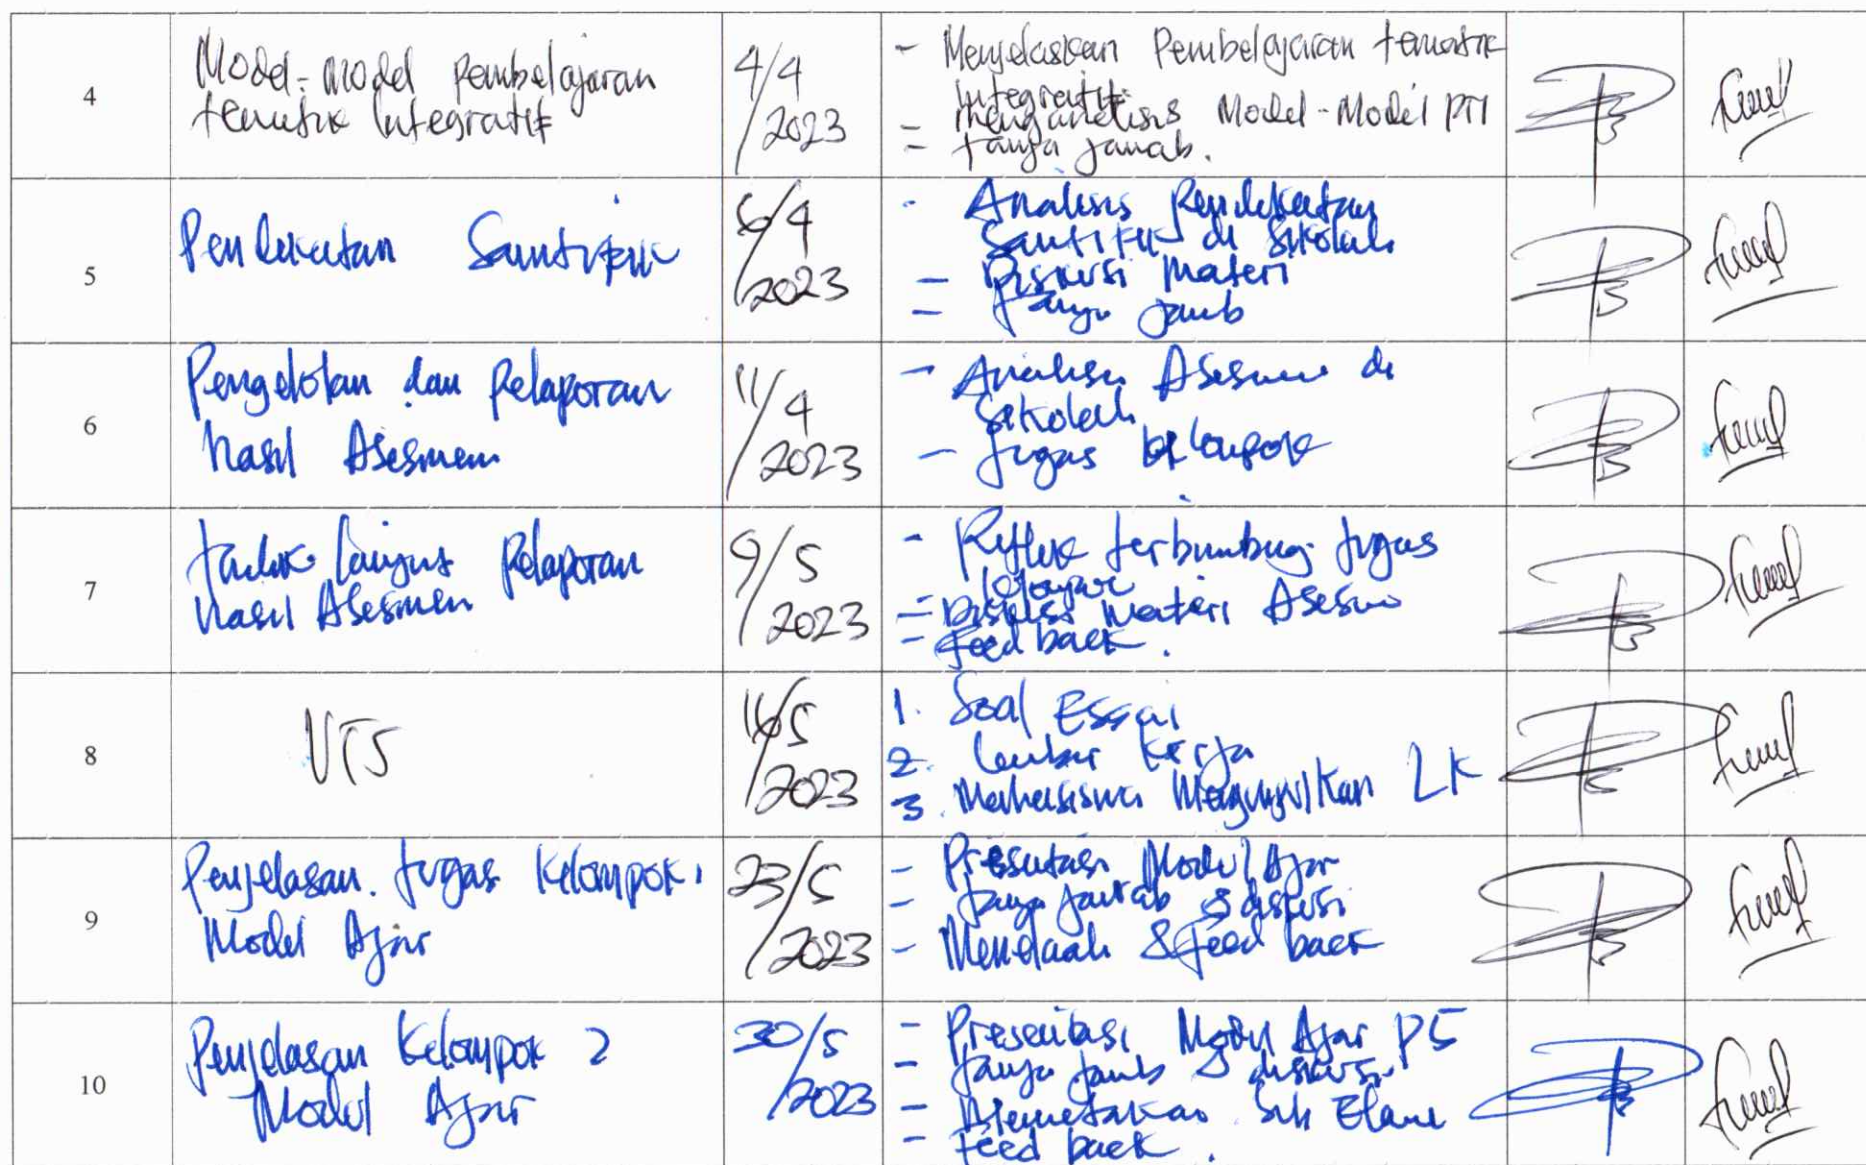 4
Model-model pembelajaran
tematik integratif
4/4
/2023
- Menjelaskan Pembelajaran tematik
integratif
- menganalisis Model-Model PTI
- tanya jawab.
5
Pendekatan Saintifik
6/4
/2023
- Analisis Pendekatan
Saintifik di Sekolah
- Diskusi Materi
- Tanya jawab
6
Pengelolan dan Pelaporan
hasil Asesmen
11/4
/2023
- Analisis Asesmen di
Sekolah
- Tugas kelompok
7
Pelaporan
hasil Asesmen
9/5
/2023
- tugas
- Diskusi Materi Asesmen
- Feed back.
8
UTS
16/5
/2023
1. Soal Essai
2. Lembar Kerja
3. Mahasiswa Mengumpulkan LK
9
Penjelasan. tugas Kelompok 1
Modul Ajar
23/5
/2023
- Presentasi Modul Ajar
- Tanya jawab & diskusi
- Menelaah & feed back
10
Penjelasan Kelompok 2
Modul Ajar
30/5
/2023
- Presentasi Modul Ajar P5
- Tanya jawab & diskusi
- Memetakan
- Feed back.